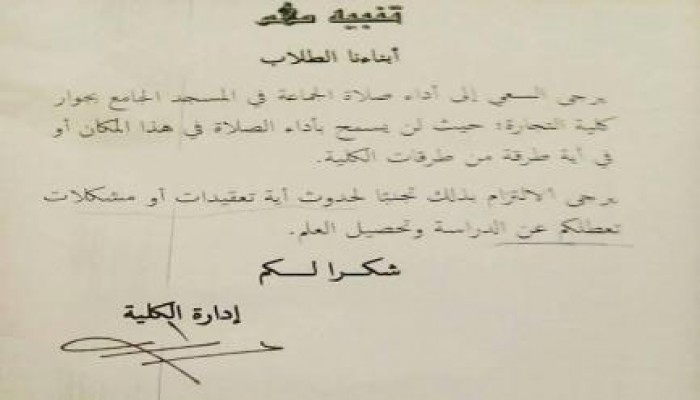 تنبيه مهم
أبناءنا الطلاب
يرجى السعي إلى أداء صلاة الجماعة في المسجد الجامع بجوار
كلية التجارة؛ حيث لن يسمح بأداء الصلاة في هذا المكان أو
في أية طرقة من طرقات الكلية.
يرجى الالتزام بذلك تجنبًا لحدوث أية تعقيدات أو مشكلات
تعطلكم عن الدراسة وتحصيل العلم.
شكرا لكم
إدارة الكلية